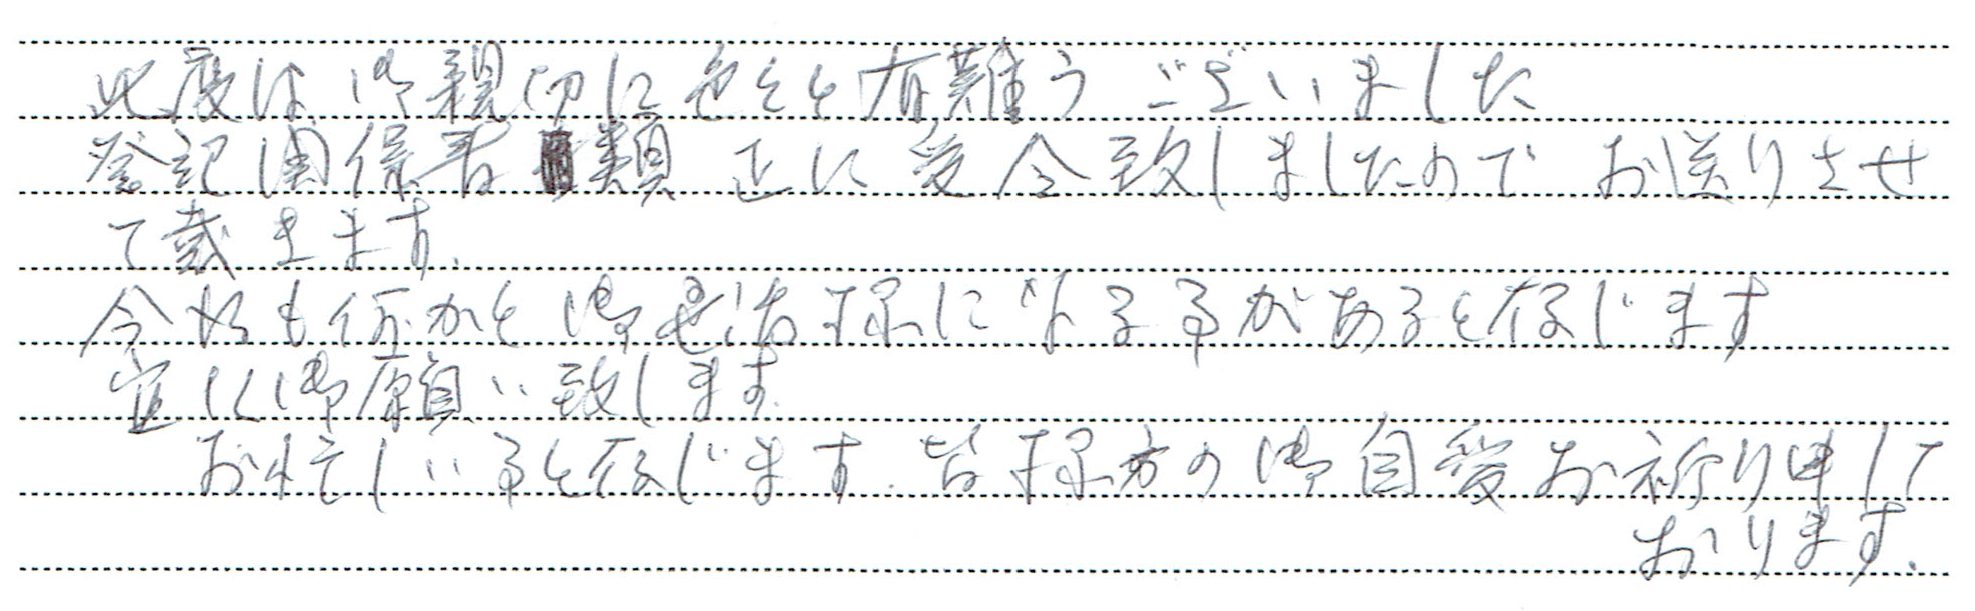 此度は御親切に色々と有難うございました
登記関係書類正に受令致しましたのでお送りさせ
て戴きます.
今后も何かと御世話様になる事があると存じます
宜しく御願い致します.
お忙しい事と存じます.皆様方の御自愛お祈り申して
おります.